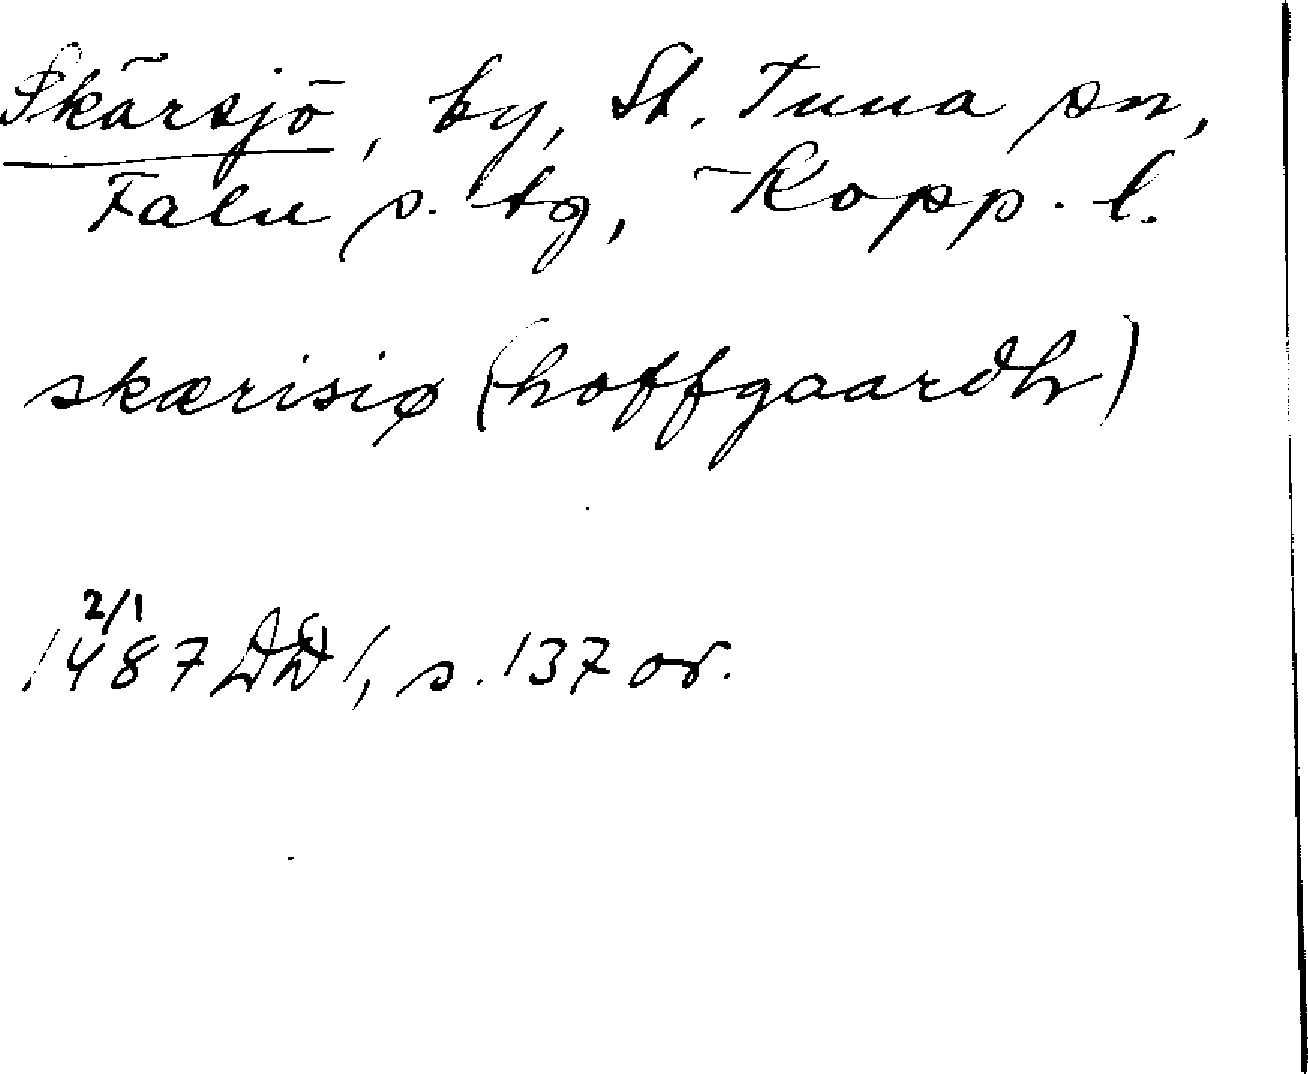 Skärsjö, by, St. Tuna sn,
Falu s. tg, Kopp. l.
skærisiø (hoffgaardh)
2/1
1487 DD 1, s. 137 or.